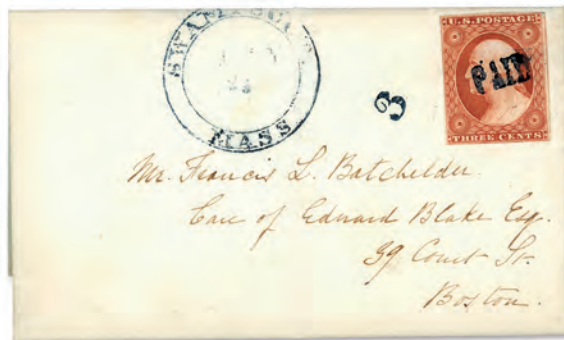 MASS.
3
U.S. POSTAGE
PAID
THREE CENTS
Mr. Francis L. Batchelder.
Care of Edward Blake Esq.
39 Court St.
Boston.